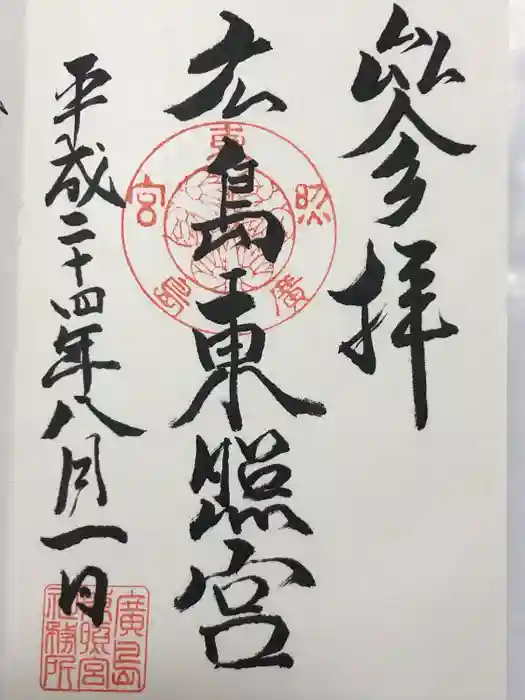 参拝
広島東照宮
平成二十四年八月一日
東照宮廣島
廣島
東照宮
社務所